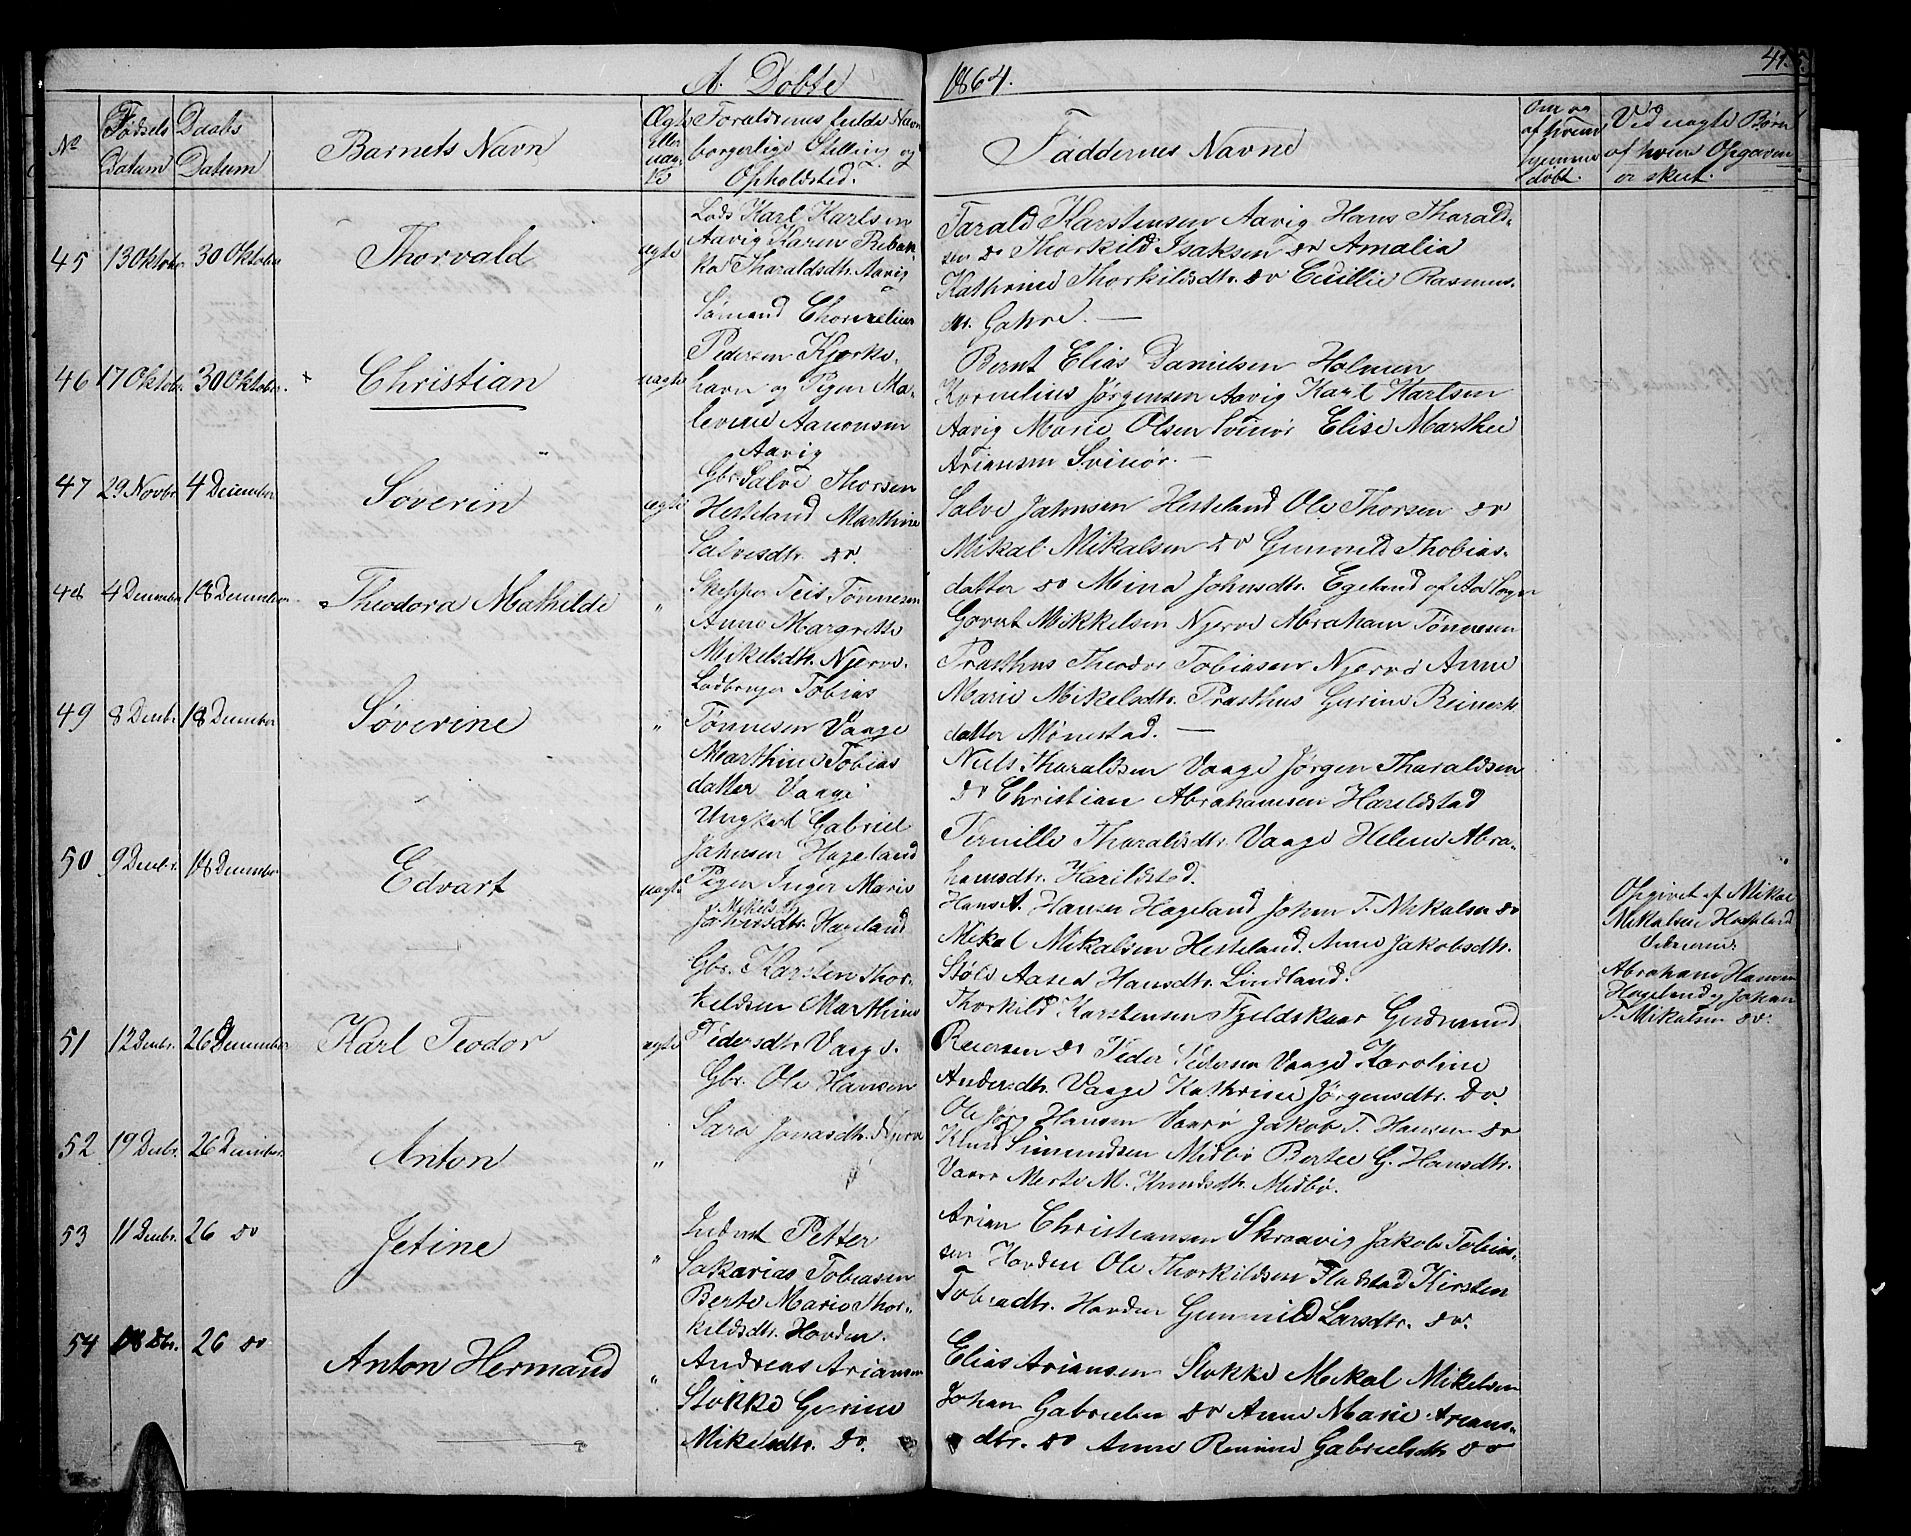 A. Døbte 1864.
41.
No
Fødsels Datum
Daabs Datum
Barnets Navn
Ægte eller uægte
Forældrenes fulde Navn
borgerlige Stilling og
Opholdsted.
Faddernes Navne
Om og
af hvem
hjemme
døbt.
Ved uægte Børn
af hvem Opgaven
er skeet.
45 13 Oktober 30 Oktober Thorvald ægte
Lods Karl Karlsen
Aavig Karen Rebek
ka Tharaldsdtr. Aavig
Tarald Karstensen Aavig Hans Tharald-
sen do Thorkild Isaksen do Amalia
Kathrine Thorkildsdtr. do Cecillie Rasmus-
Gahre.—
46 17 Oktob. 30 Oktober. Christian uægte
Sømand Chornelius
Pedersen Kjerke-
havn og Pigen Ma-
levine Aanonsen
Aavig
Bernt Elias Danielsen Holmen
Kornelius Jørgensen Aavig Karl Karlsen
Aavig Marie Olsen Svinør Elise Marthee
Ariansen Svinør.—
47 29 Novbr. 4 December Søverin ægte
Gbr. Salve Thorsen
Hesteland Marthine
Salvesdtr. do.
Salve Jahnsen Hesteland Ole Thorsen do
Mikal Mikalsen do Gunvild Thobias-
datter do Mina Johnsdtr. Egeland
48 4 December 18 December Theodora Mathilde "
Skipper Teis Tønnesen
Anne Margrethe
Mikelsdtr. Njerve.
Govert Mikkelsen Njerve Abraham Tønnesen
Prasthus Theodor Tobiasen Njerve Anne
Marie Mikelsdtr. Prasthus Gurine Reinert-
datter Mønestad.—
49 8 Decbr. 18 December Søverine "
Ladbruger Tobias
Tønnesen Vaage
Marthine Tobias
datter Vaage
Niels Tharaldsen Vaage Jørgen Tharaldsen
do Christian Abrahamsen Harildstad
Pernille Tharaldsdtr. Vaage Helene Abra-
hamsdtr. Harildstad.
50 9 Decbr. 18 December Edvart uægte
Ungkarl Gabriel
Jahnsen Hageland
Pigen Inger Marie
Mikels
Jahnsdtr. Hageland
Hans A. Hansen Hageland Johan T. Mikalsen do
Mikal Mikalsen Hesteland. Anne Jakobsdtr.
Støle Aased Hansdtr. Lindland.
Opgivet af Mikal
Mikalsen Hesteland
Abraham Hansen
Hageland og Johan
T. Mikalsen do.
51 12 Decbr. 26 December Karl Teodor ægte
Gbr. Karsten Thor-
kildsen Marthine
Pedersdtr. Vaage.
Thorkild Karstensen Fjeldskaar Gudmund
Reiersen do Peder Pedersen Vaage Karoline
Andersdtr. Vaage Kathrine Jørgensdtr. Do.
52 19 Decbr. 26 December Anton "
Gbr. Ole Hansen
Sara Jonasdtr. Njerve
Ole Jørg Hansen Vaarø Jakob T. Hansen do
Knud Simundsen Midbø Bertee G. Hansdtr.
Vaarø Merte M. Knudsdtr. Midbø.
53 11 Decbr. 26 do Jetine "
Inderst Petter
Sakarias Tobiasen
Berte Marie Thor-
kildsdtr. Hovden.
Arian Christiansen Skraavig Jakob Tobias-
sen Hovden Ole Thorkildsen Fladstad Kirsten
Tobiadtr. Hovden Gunnild Larsdtr. do.
54 18 Dbr. 26 do Anton Hermand "
Andreas Ariansen
Stokke Gurine
Mikelsdtr. Do.
Elias Ariansen Stokke Mekal Mikelsen
Johan Gabrielsen do Anne Marie Arians-
dtr. do Anne Gabrielsdtr do